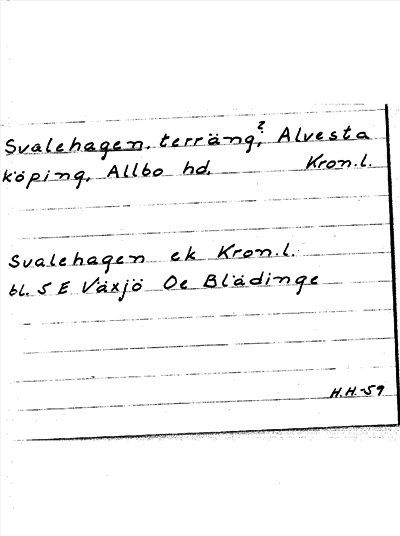 Svalehagen, terräng?, Alvesta
köping, Allbo hd. Kron.l.
Svalehagen ek Kron.l.
bl. 5 E Växjö Oe Blädinge
H.H.-59